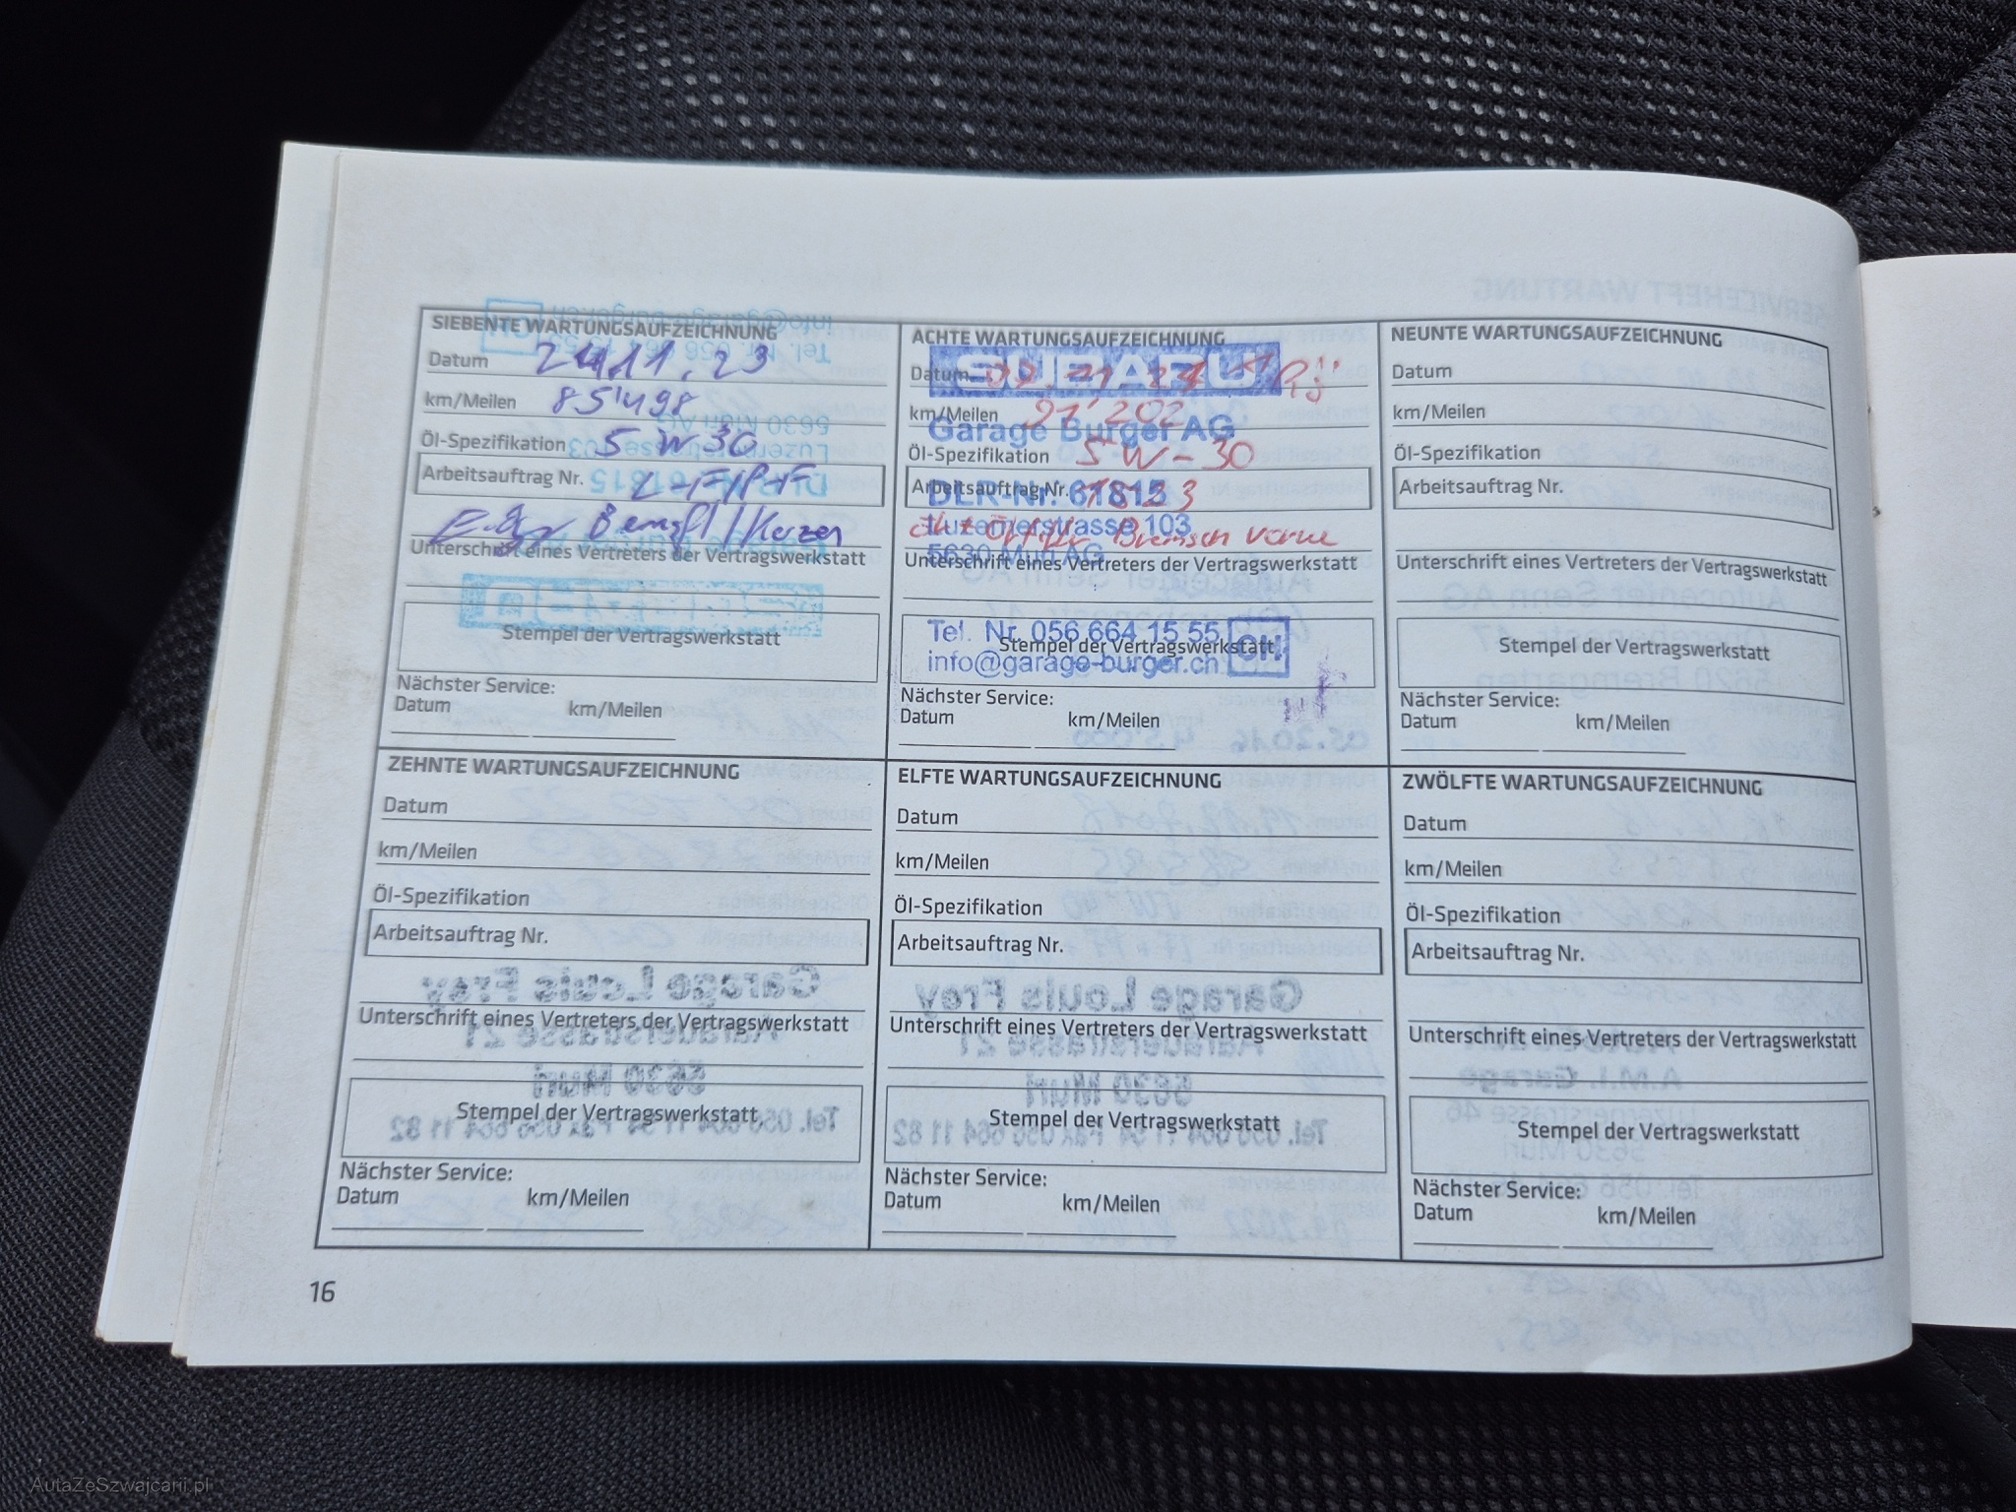 SIEBENTE WARTUNGSAUFZEICHNUNG
Datum 24.11.23
km/Meilen 85'498
Öl-Spezifikation 5W30
Arbeitsauftrag Nr.
/Kerzen
Unterschrift eines Vertreters der Vertragswerkstatt
Stempel der Vertragswerkstatt
Nächster Service:
Datum km/Meilen
ACHTE WARTUNGSAUFZEICHNUNG
SUBARU
Datum
km/Meilen 91'202
Garage Burger AG
Öl-Spezifikation 5W-30
Arbeitsauftrag Nr.
DLR-Nr. 61815
Luzernerstrasse 103
Bremsen vorne
5630 Muri AG
Unterschrift eines Vertreters der Vertragswerkstatt
Tel. Nr. 056 664 15 55
CH
Stempel der Vertragswerkstatt
info@garage-burger.ch
Nächster Service:
Datum km/Meilen
NEUNTE WARTUNGSAUFZEICHNUNG
Datum
km/Meilen
Öl-Spezifikation
Arbeitsauftrag Nr.
Unterschrift eines Vertreters der Vertragswerkstatt
Stempel der Vertragswerkstatt
Nächster Service:
Datum km/Meilen
ZEHNTE WARTUNGSAUFZEICHNUNG
Datum
km/Meilen
Öl-Spezifikation
Arbeitsauftrag Nr.
Unterschrift eines Vertreters der Vertragswerkstatt
Stempel der Vertragswerkstatt
Nächster Service:
Datum km/Meilen
ELFTE WARTUNGSAUFZEICHNUNG
Datum
km/Meilen
Öl-Spezifikation
Arbeitsauftrag Nr.
Unterschrift eines Vertreters der Vertragswerkstatt
Stempel der Vertragswerkstatt
Nächster Service:
Datum km/Meilen
ZWÖLFTE WARTUNGSAUFZEICHNUNG
Datum
km/Meilen
Öl-Spezifikation
Arbeitsauftrag Nr.
Unterschrift eines Vertreters der Vertragswerkstatt
Stempel der Vertragswerkstatt
Nächster Service:
Datum km/Meilen
16
AutaZeSzwajcarii.pl